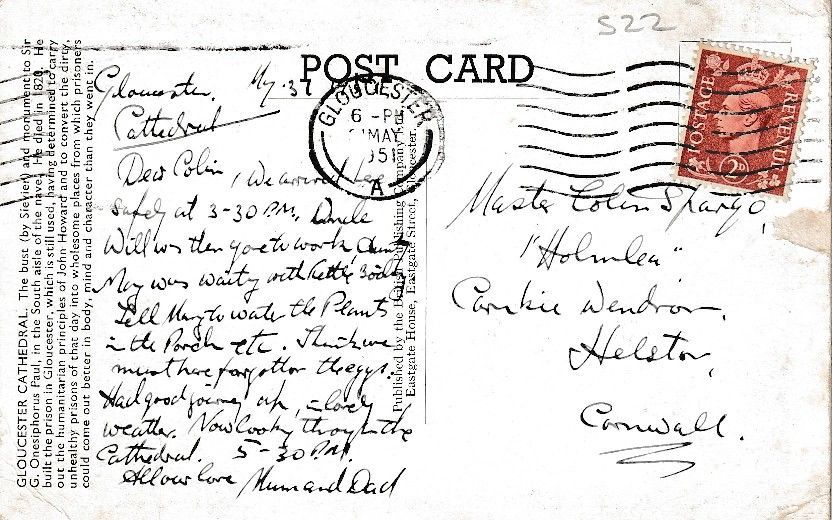 S22
POST CARD
GLOUCESTER
6 - PM
MAY
1951
A
POSTAGE
REVENUE
2D
GLOUCESTER CATHEDRAL. The bust (by Sievier) and monument to Sir
G. Onesiphorus Paul, in the South aisle of the nave. He died in 1820. He
built the prison in Gloucester, which is still used, having determined to carry
out the humanitarian principles of John Howard and to convert the dirty,
unhealthy prisons of that day into wholesome places from which prisoners
could come out better in body, mind and character than they went in.
Gloucester.
Cathedral
Dear Colin, We arrived here
safely at 3-30 P.M, Uncle
Will was then gone to work Aunty
May was waiting with Kettle
Tell Mary to water the Plants
in the Porch etc. Think we
must have forgotten the eggs.
Had good journey up, in lovely
weather. Now looking through the
Cathedral. 5-30 P.M.
All our love Mum and Dad
Published by the British Publishing Company Ltd.
Eastgate House, Eastgate Street, Gloucester.
Master Colin Spargo,
"Holmlea"
Carnkie Wendron,
Helston,
Cornwall.